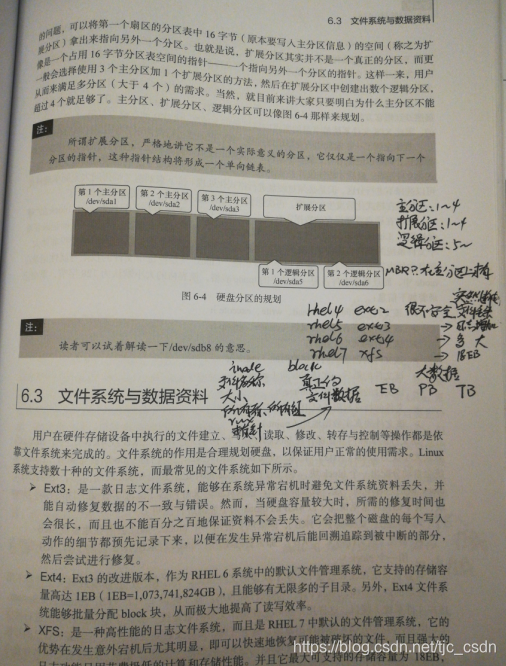 6.3 文件系统与数据资料
的问题，可以将第一个扇区的分区表中 16 字节（原本要写入主分区信息）的空间（称之为扩
展分区）拿出来指向另外一个分区。也就是说，扩展分区其实并不是一个真正的分区，而更
像是一个占用 16 字节分区表空间的指针——一个指向另外一个分区的指针。这样一来，用户
一般会选择使用 3 个主分区加 1 个扩展分区的方法，然后在扩展分区中创建出数个逻辑分区，
从而来满足多分区（大于 4 个）的需求。当然，就目前来讲大家只要明白为什么主分区不能
超过 4 个就足够了。主分区、扩展分区、逻辑分区可以像图 6-4 那样来规划。
注：
所谓扩展分区，严格地讲它不是一个实际意义的分区，它仅仅是一个指向下一个
分区的指针，这种指针结构将形成一个单向链表。
第 1 个主分区
/dev/sda1
第 2 个主分区
/dev/sda2
第 3 个主分区
/dev/sda3
扩展分区
主分区：1~4
扩展分区：1~4
逻辑分区：5~
第 1 个逻辑分区
/dev/sda5
第 2 个逻辑分区
/dev/sda6
图 6-4 硬盘分区的规划
rhel4 ext2
rhel5 ext3
rhel6 ext4
rhel7 xfs → 18EB
注：
读者可以试着解读一下/dev/sdb8 的意思。
inode block
大数据
大小
真正的
文件数据
EB PB TB
6.3 文件系统与数据资料
用户在硬件存储设备中执行的文件建立、写入、读取、修改、转存与控制等操作都是依
靠文件系统来完成的。文件系统的作用是合理规划硬盘，以保证用户正常的使用需求。Linux
系统支持数十种的文件系统，而最常见的文件系统如下所示。
➢ Ext3：是一款日志文件系统，能够在系统异常宕机时避免文件系统资料丢失，并
能自动修复数据的不一致与错误。然而，当硬盘容量较大时，所需的修复时间也
会很长，而且也不能百分之百地保证资料不会丢失。它会把整个磁盘的每个写入
动作的细节都预先记录下来，以便在发生异常宕机后能回溯追踪到被中断的部分，
然后尝试进行修复。
➢ Ext4：Ext3 的改进版本，作为 RHEL 6 系统中的默认文件管理系统，它支持的存储容
量高达 1EB（1EB=1,073,741,824GB），且能够有无限多的子目录。另外，Ext4 文件系
统能够批量分配 block 块，从而极大地提高了读写效率。
➢ XFS：是一种高性能的日志文件系统，而且是 RHEL 7 中默认的文件管理系统，它的
优势在发生意外宕机后尤其明显，即可以快速地恢复可能被破坏的文件，而且强大的
日志功能只用花费极低的计算和存储性能。并且它最大可支持的存储容量为 18EB，
https://blog.csdn.net/tjc_csdn